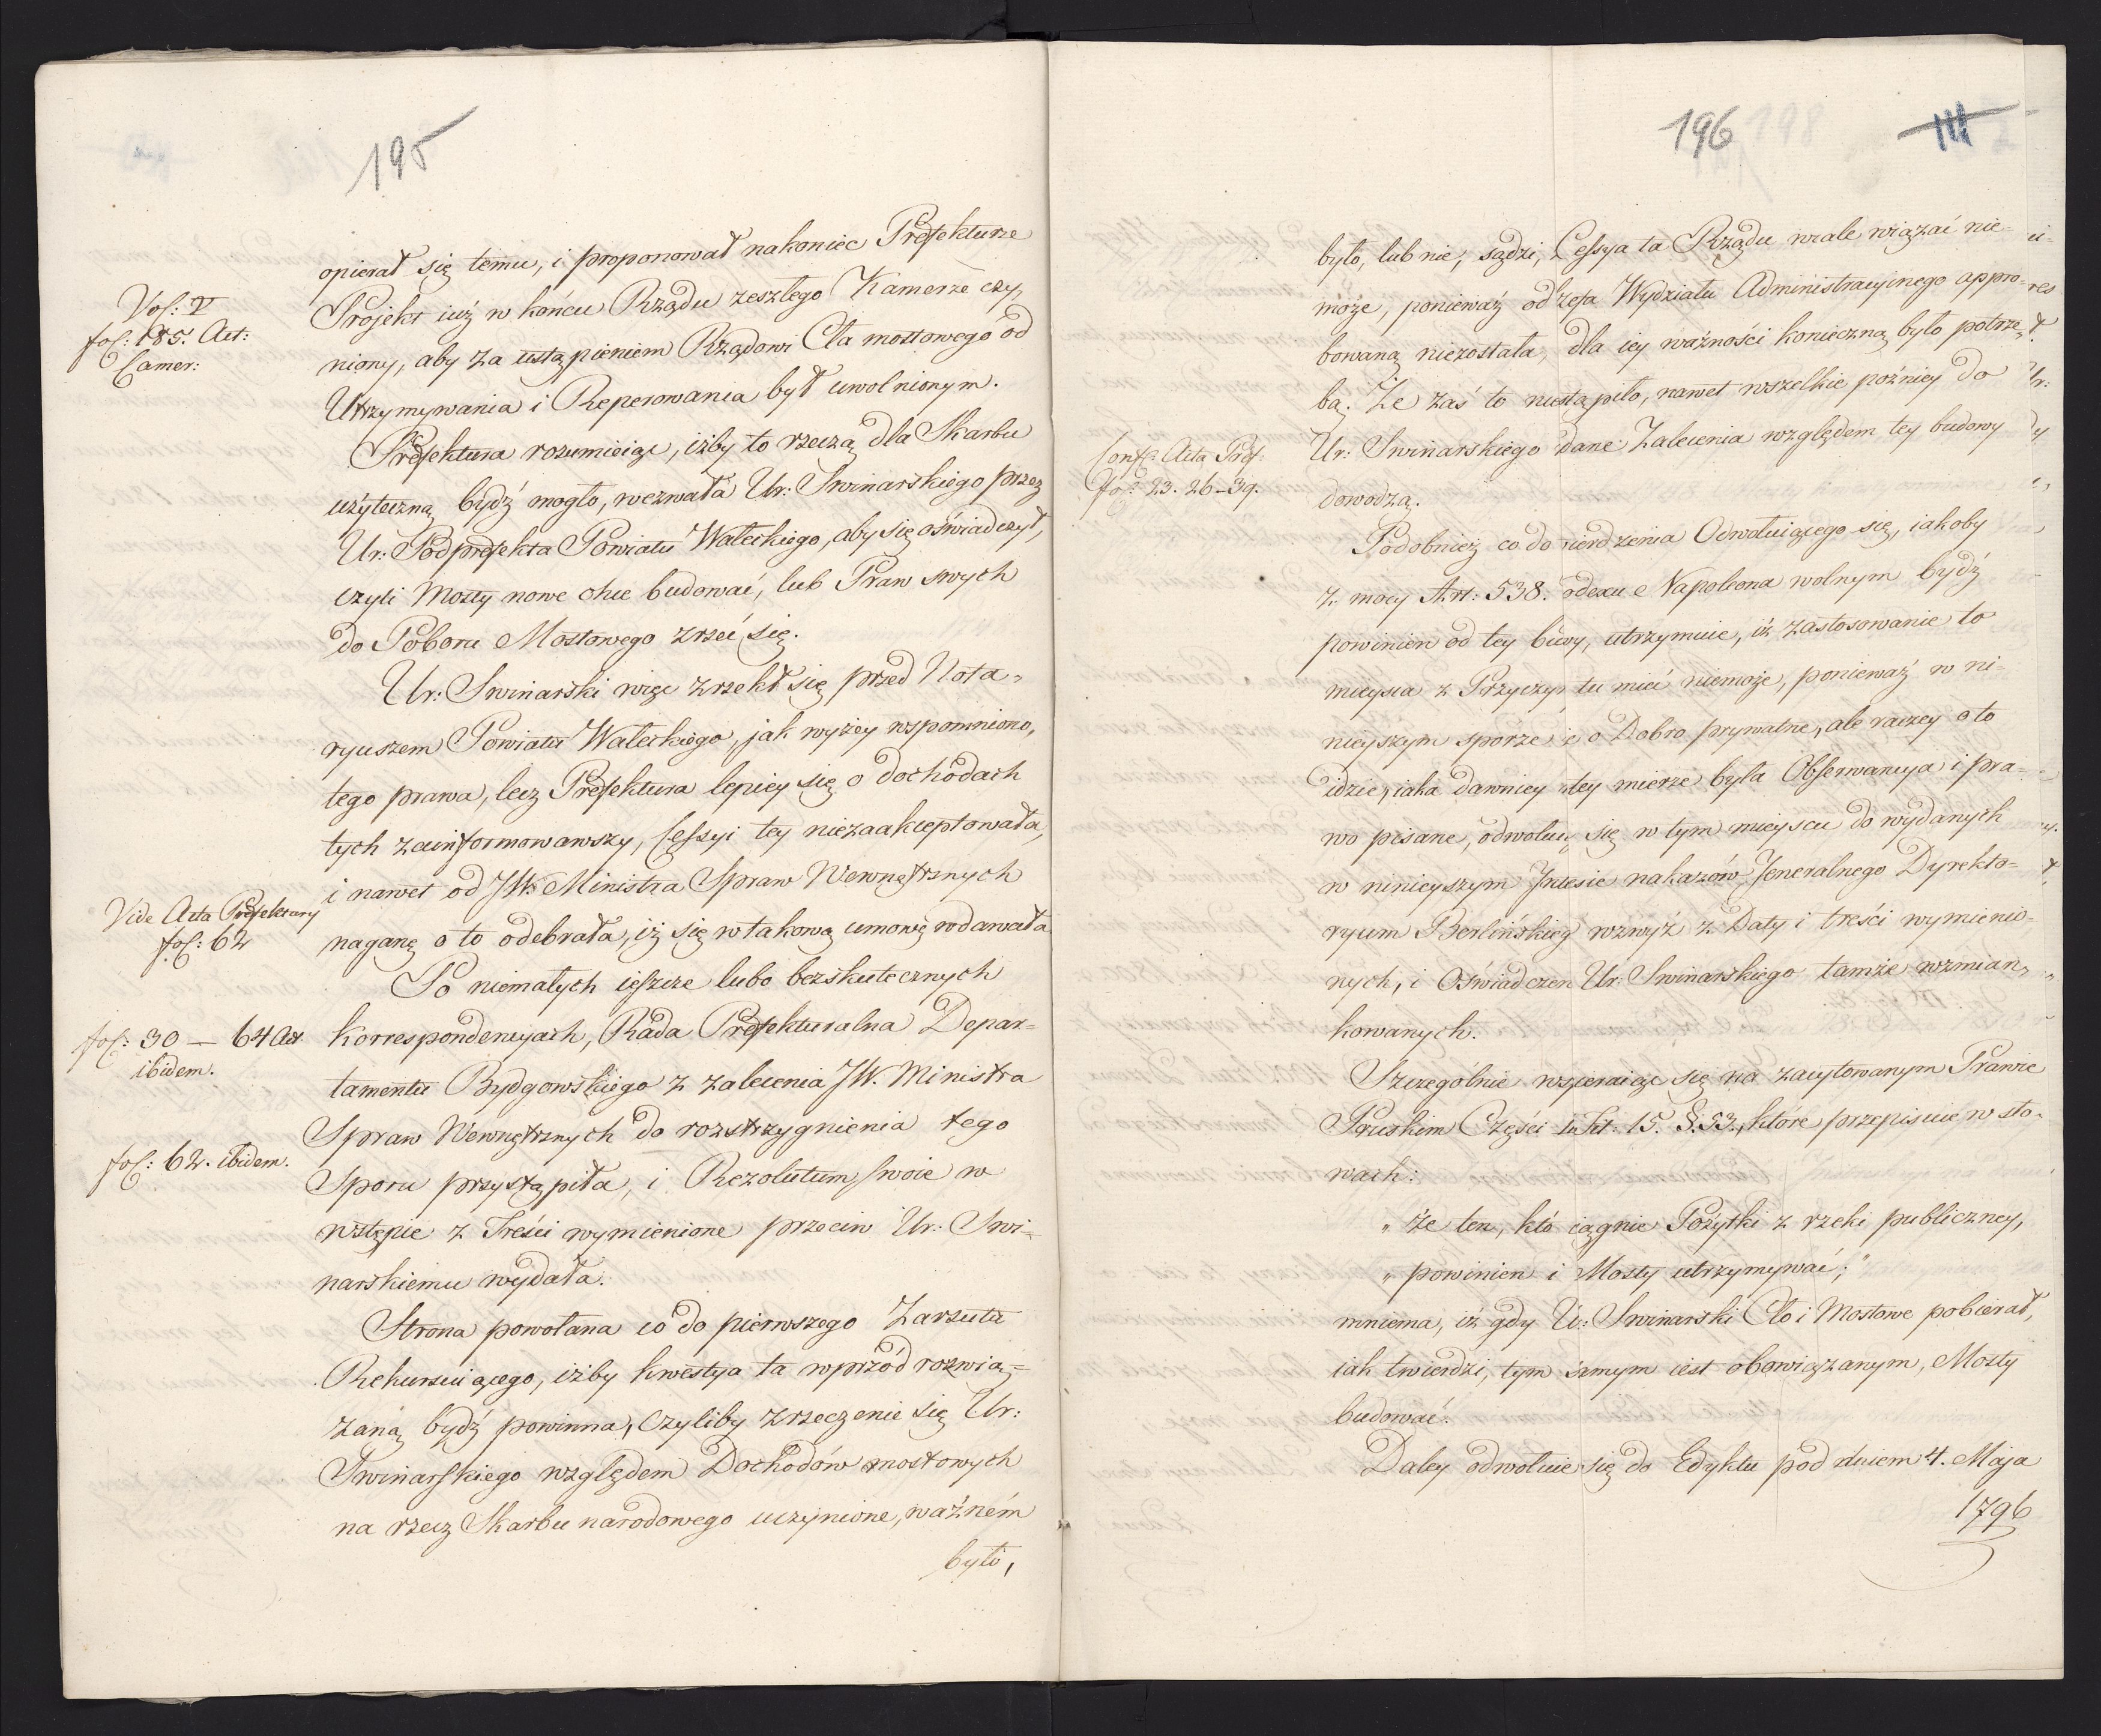 195
opierał się temu, i proponował nakoniec Prefekturze
Vol: I
fol: 185. Act:
Camer:
Projekt iuż w końcu Rządu zeszłego Kamerze czy,
niony, aby za ustąpieniem Rządowi Cła mostowego od
Utrzymywania i Reperowania był uwolnionym.
Prefektura rozumieiąc, iżby to rzeczą dla Skarbu
użyteczną bydź mogło, wezwała Ur: Swinarskiego przez
Ur: Podprefekta Powiatu Wałeckiego, aby się oświadczył,
czyli Mosty nowe chce budować, lub Praw swych
do Poboru Mostowego zrzec się.
Ur: Swinarski więc zrzekł się przed Nota-
ryuszem Powiatu Wałeckiego, jak wyżey wspomniono,
tego prawa, lecz Prefektura lepiey się o dochodach
tych zainformowawszy, Cessyi tey niezaakceptowała,
i nawet od JW. Ministra Spraw Wewnętrznych
Vide Acta Prefektury
fol: 62
naganę o to odebrała, iż się w takową umowę wdawała
Po niemałych ieszcze lubo bezskutecznych
fol: 30 — 64 Act
ibidem.
korrespondencyach, Rada Prefekturalna Depar-
tamentu Bydgowskiego z zalecenia JW. Ministra
Spraw Wewnętrznych do rozstrzygnienia tego
fol: 62. ibidem.
Sporu przystąpiła, i Rezolutum swoie w
wstępie z Treści wymienione przeciw Ur: Swi-
narskiemu wydała.
Strona powołana co do pierwszego Zarzutu
Rekursuiącego, iżby kwestya ta wprzód rozwią-
zaną bydź powinna, czyliby zrzeczenie się Ur:
Swinarskiego względem Dochodów mostowych
na rzecz Skarbu narodowego uczynione, ważném
było,
196 198 III
było, lub nie, sądzi, Cessya ta Rządu wcale wiązać nie-
może, ponieważ od Szefa Wydziału Administracyinego appro-
bowaną niezostała, dla iey ważności konieczną było potrze-
bą. Że zaś to nastąpiło, nawet wszelkie poźniey do
Conf: Acta Pref:
fol: 23. 26–39.
Ur: Swinarskiego dane Zalecenia względem tey budowy
dowodzą.
Podobnież co do twierdzenia Odwołuiącego się, iakoby
z mocy Art: 538. Kodexu Napoleona wolnym bydź
powinien od tey budowy, utrzymuie, iż zastosowanie to
mieysca z Przyczyn tu mieć niemoże, ponieważ w ni-
nieyszym sporze o Dobro prywatne, ale raczey o to
idzie, iaka dawniey w tey mierze była Obserwancya i pra-
wo pisane, odwołuie się w tym mieyscu do wydanych
w ninieyszym Jnteresie nakazów Jeneralnego Dyrekto-
ryum Berlińskiego wzwyż z Daty i treści wymienio-
nych, i Oświadczeń Ur: Swinarskiego tamże wzmian,
kowanych.
Szczególnie wspieraiąc się na zacytowanym Prawie
Pruskim Części II. Tit. 15. §. 53., które przepisuie w sło-
wach:
„ że ten, kto ciągnie Pożytki z rzeki publiczney,
„ powinien i Mosty utrzymywać;"
mniema, iż gdy Ur: Swinarski Cło i Mostowe pobierał,
iak twierdzi, tym samym iest obowiązanym, Mosty
budować.
Daley odwołuie się do Edyktu pod dniem 4. Maja
1796